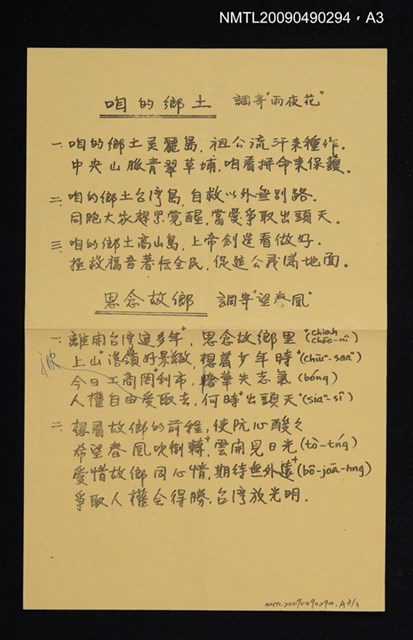 NMTL20090490294，A3
咱的鄉土 調寄"雨夜花"
一、咱的鄉土美麗島，祖公流汗來種作。
中央山脈青翠草埔，咱著拼命來保護。
二、咱的鄉土台灣島，自救以外無別路。
同胞大家趕緊覺醒，當愛爭取出頭天。
三、咱的鄉土高山島，上帝創造看做好。
拯救福音著傳全民，促進公義滿地面。
思念故鄉 調寄"望春風"
一、離開台灣這多年，思念故鄉里(chhân-chhēo-nî)
上山 好景緻，想着少年時(chiū-saⁿ)
今日工商罔利市，繁華失志氣(bóng)
人權自由愛取去，何時出頭天(siáⁿ-sî)
二、想着故鄉的前程，使阮心酸酸
希望春風吹倒轉，雲開見日光(tò-tńg)
愛惜故鄉同心情，期待無外遠(bô-jōa-hng)
爭取人權會得勝，台灣放光明．
NMTL20090490294，A3/3